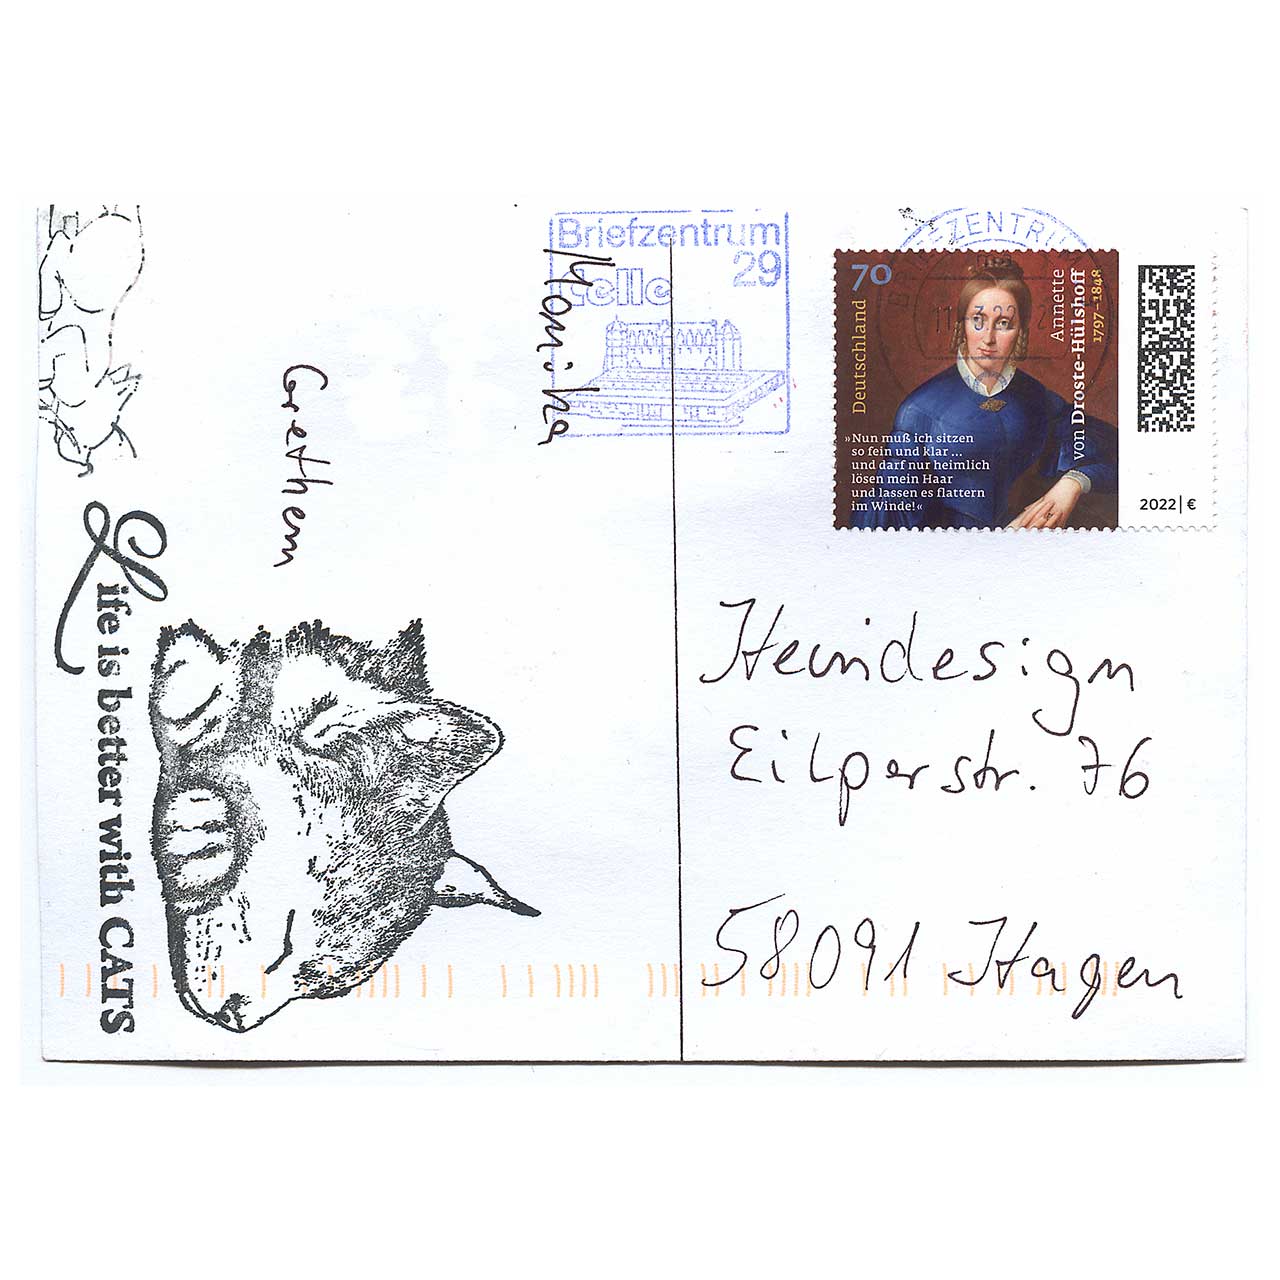 Briefzentrum
29
Celle
Monika
Grethem
Life is better with CATS
BRIEFZENTRUM
70
Deutschland
Annette
von Droste-Hülshoff
1797–1848
»Nun muß ich sitzen
so fein und klar ...
und darf nur heimlich
lösen mein Haar
und lassen es flattern
im Winde!«
2022 | €
Heindesign
Eilperstr. 76
58091 Hagen